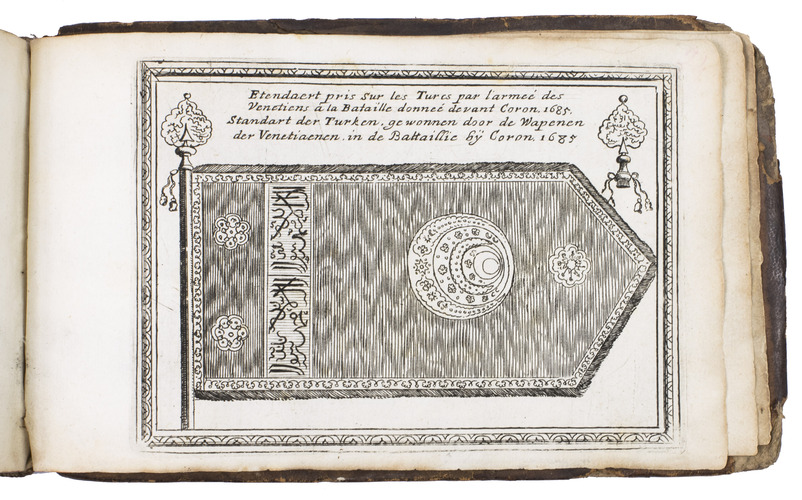 Etendaert pris Sur les Turcs par l'armeé des
Venetiens á la Bataille donneé devant Coron. 1685.
Standart der Turken, gewonnen door de Wapenen
der Venetiaenen. in de Battaillie bÿ Coron. 1685